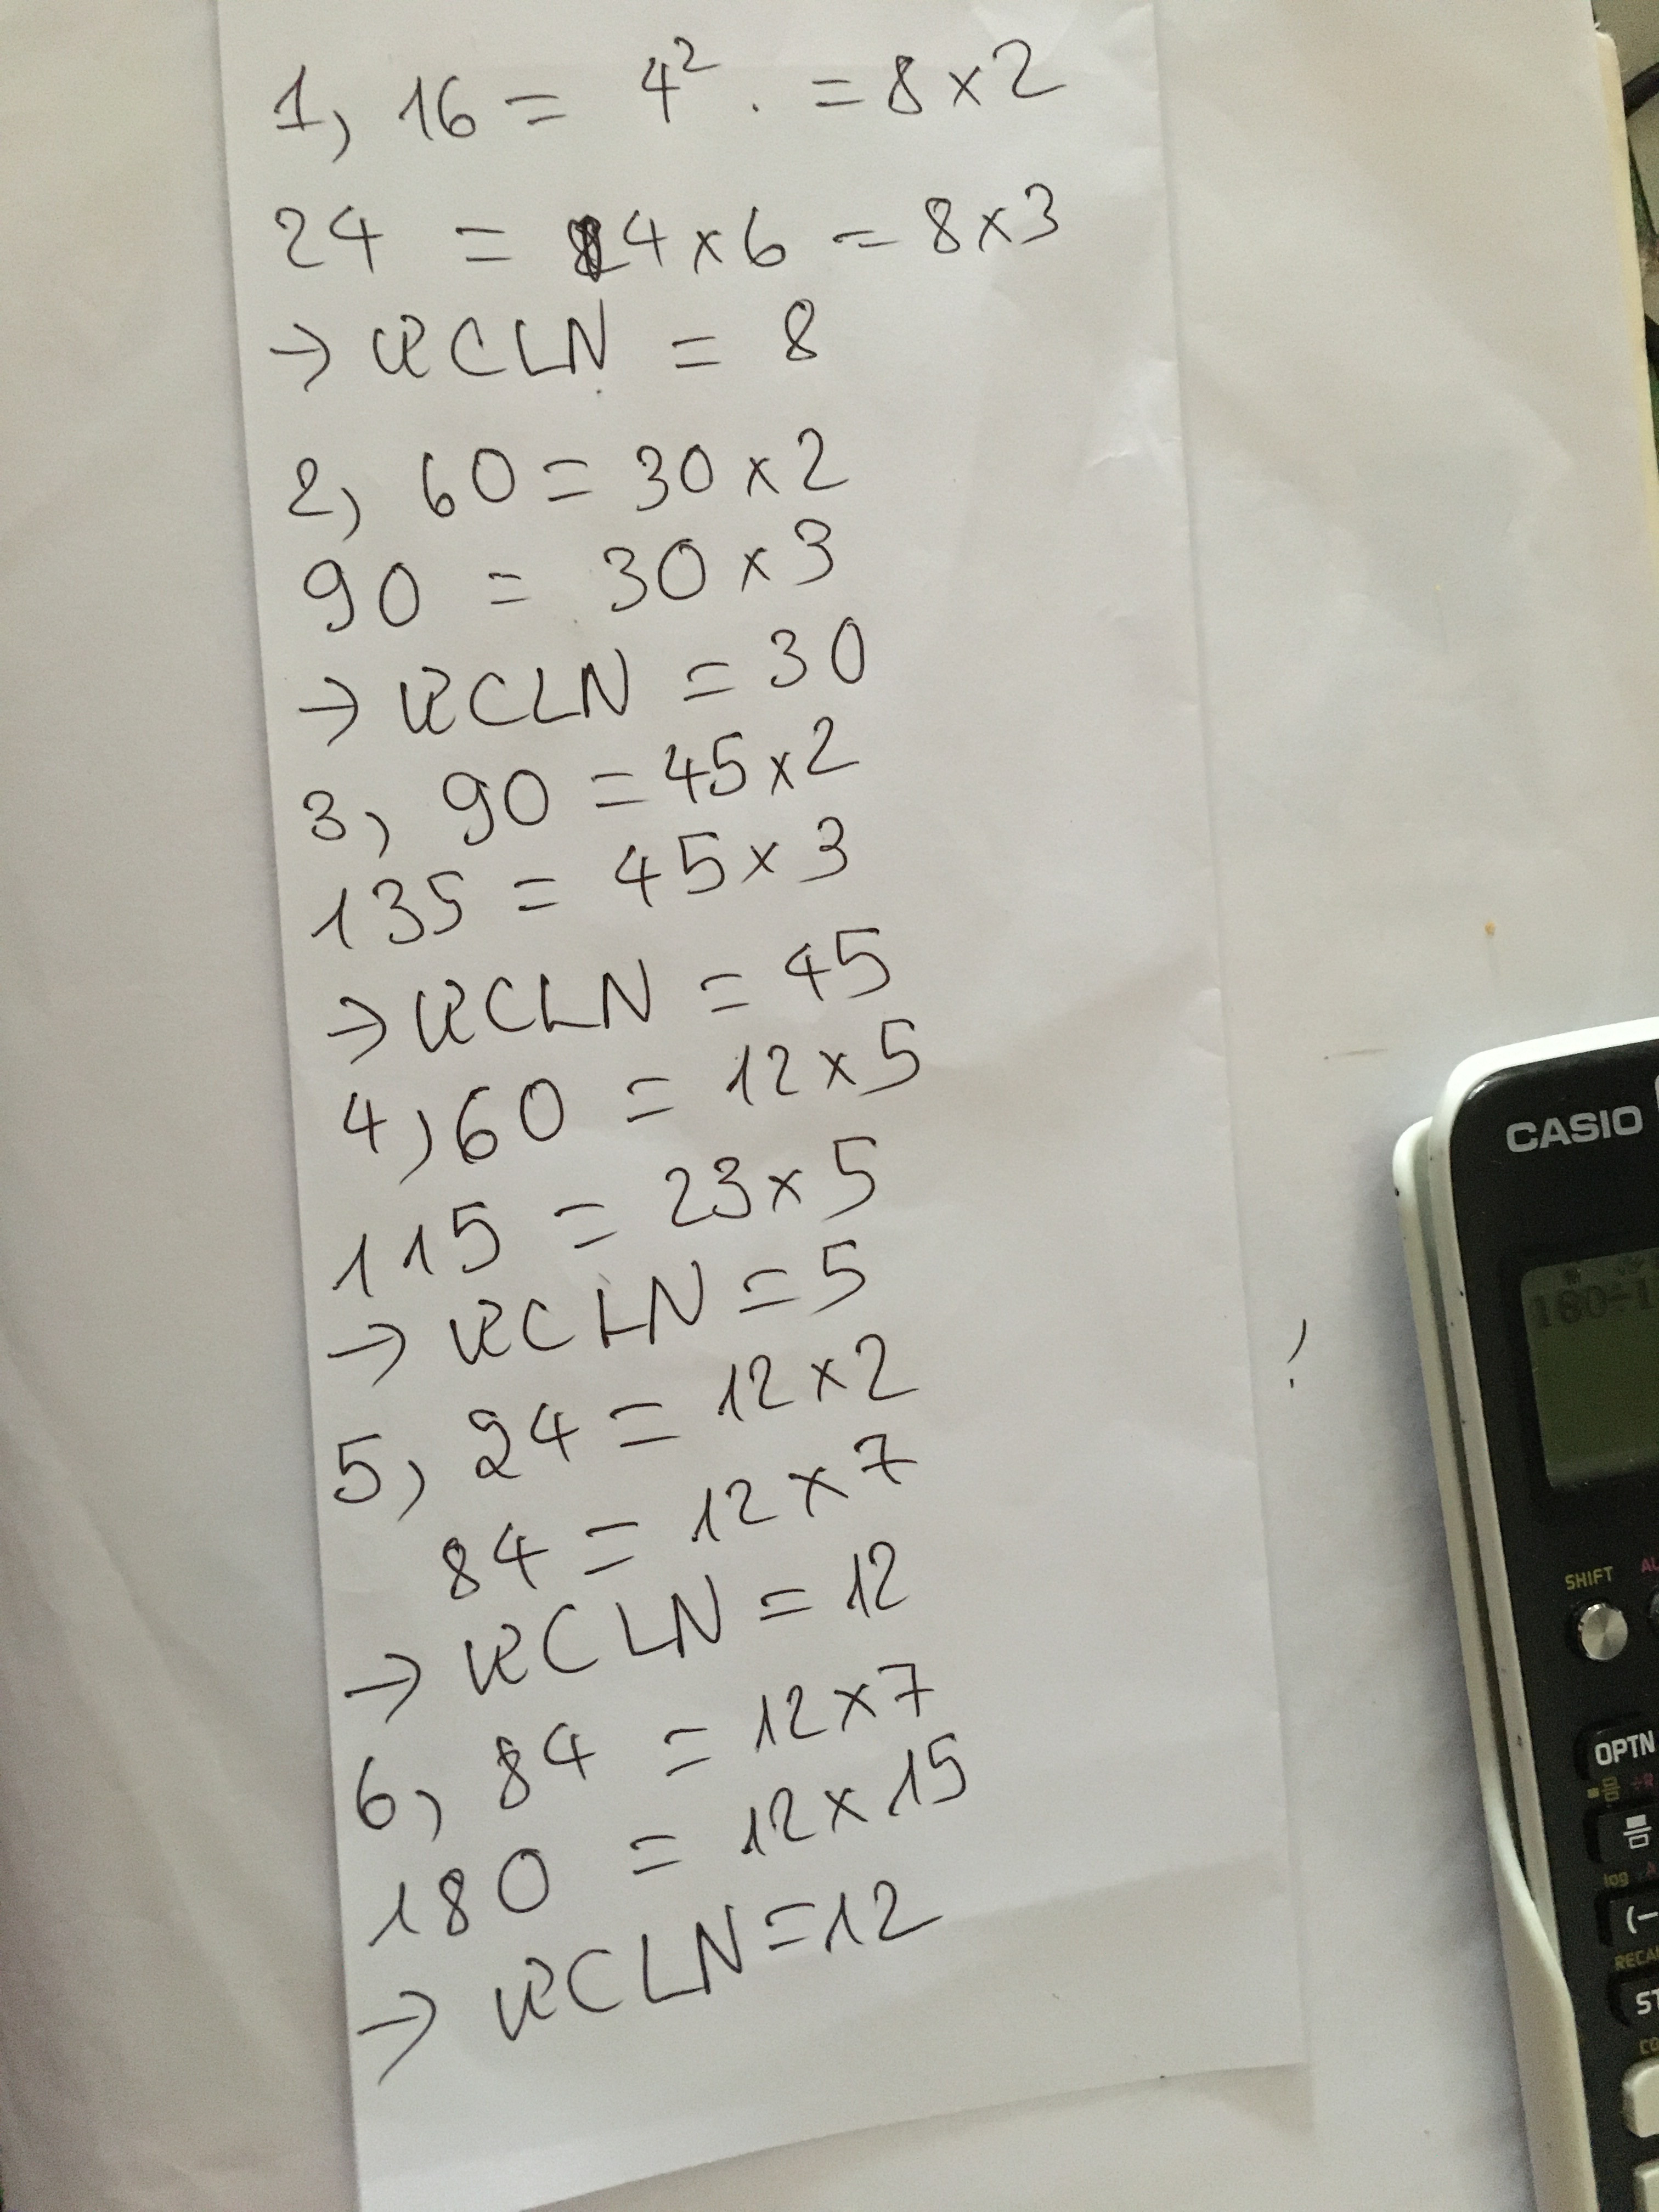 1, 16 = 4² . = 8 x 2
24 = 4 x 6 = 8 x 3
→ ƯCLN = 8
2, 60 = 30 x 2
90 = 30 x 3
→ ƯCLN = 30
3, 90 = 45 x 2
135 = 45 x 3
→ ƯCLN = 45
4, 60 = 12 x 5
115 = 23 x 5
→ ƯCLN = 5
5, 24 = 12 x 2
84 = 12 x 7
→ ƯCLN = 12
6, 84 = 12 x 7
180 = 12 x 15
→ ƯCLN = 12
CASIO
180÷1
SHIFT
OPTN
log
(−